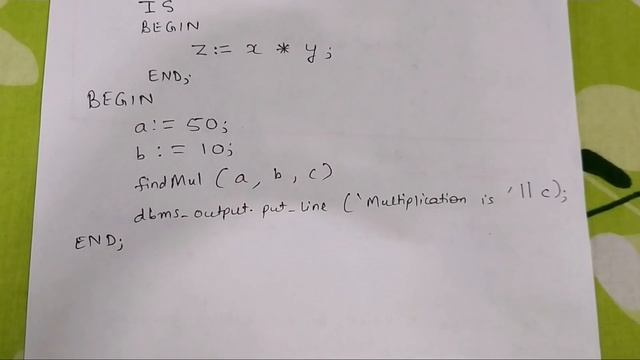 IS
BEGIN
z:= x * y;
END;
BEGIN
a:= 50;
b := 10;
findMul (a, b, c)
dbms_output.put_line ('Multiplication is '|| c);
END;